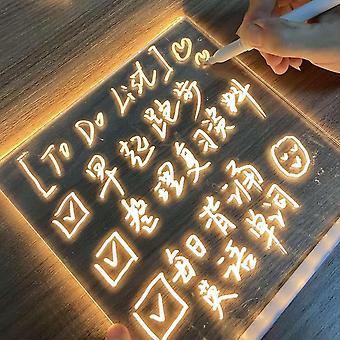 [To Do List]
早起跑步
整理复习资料
每日背诵
英语单词